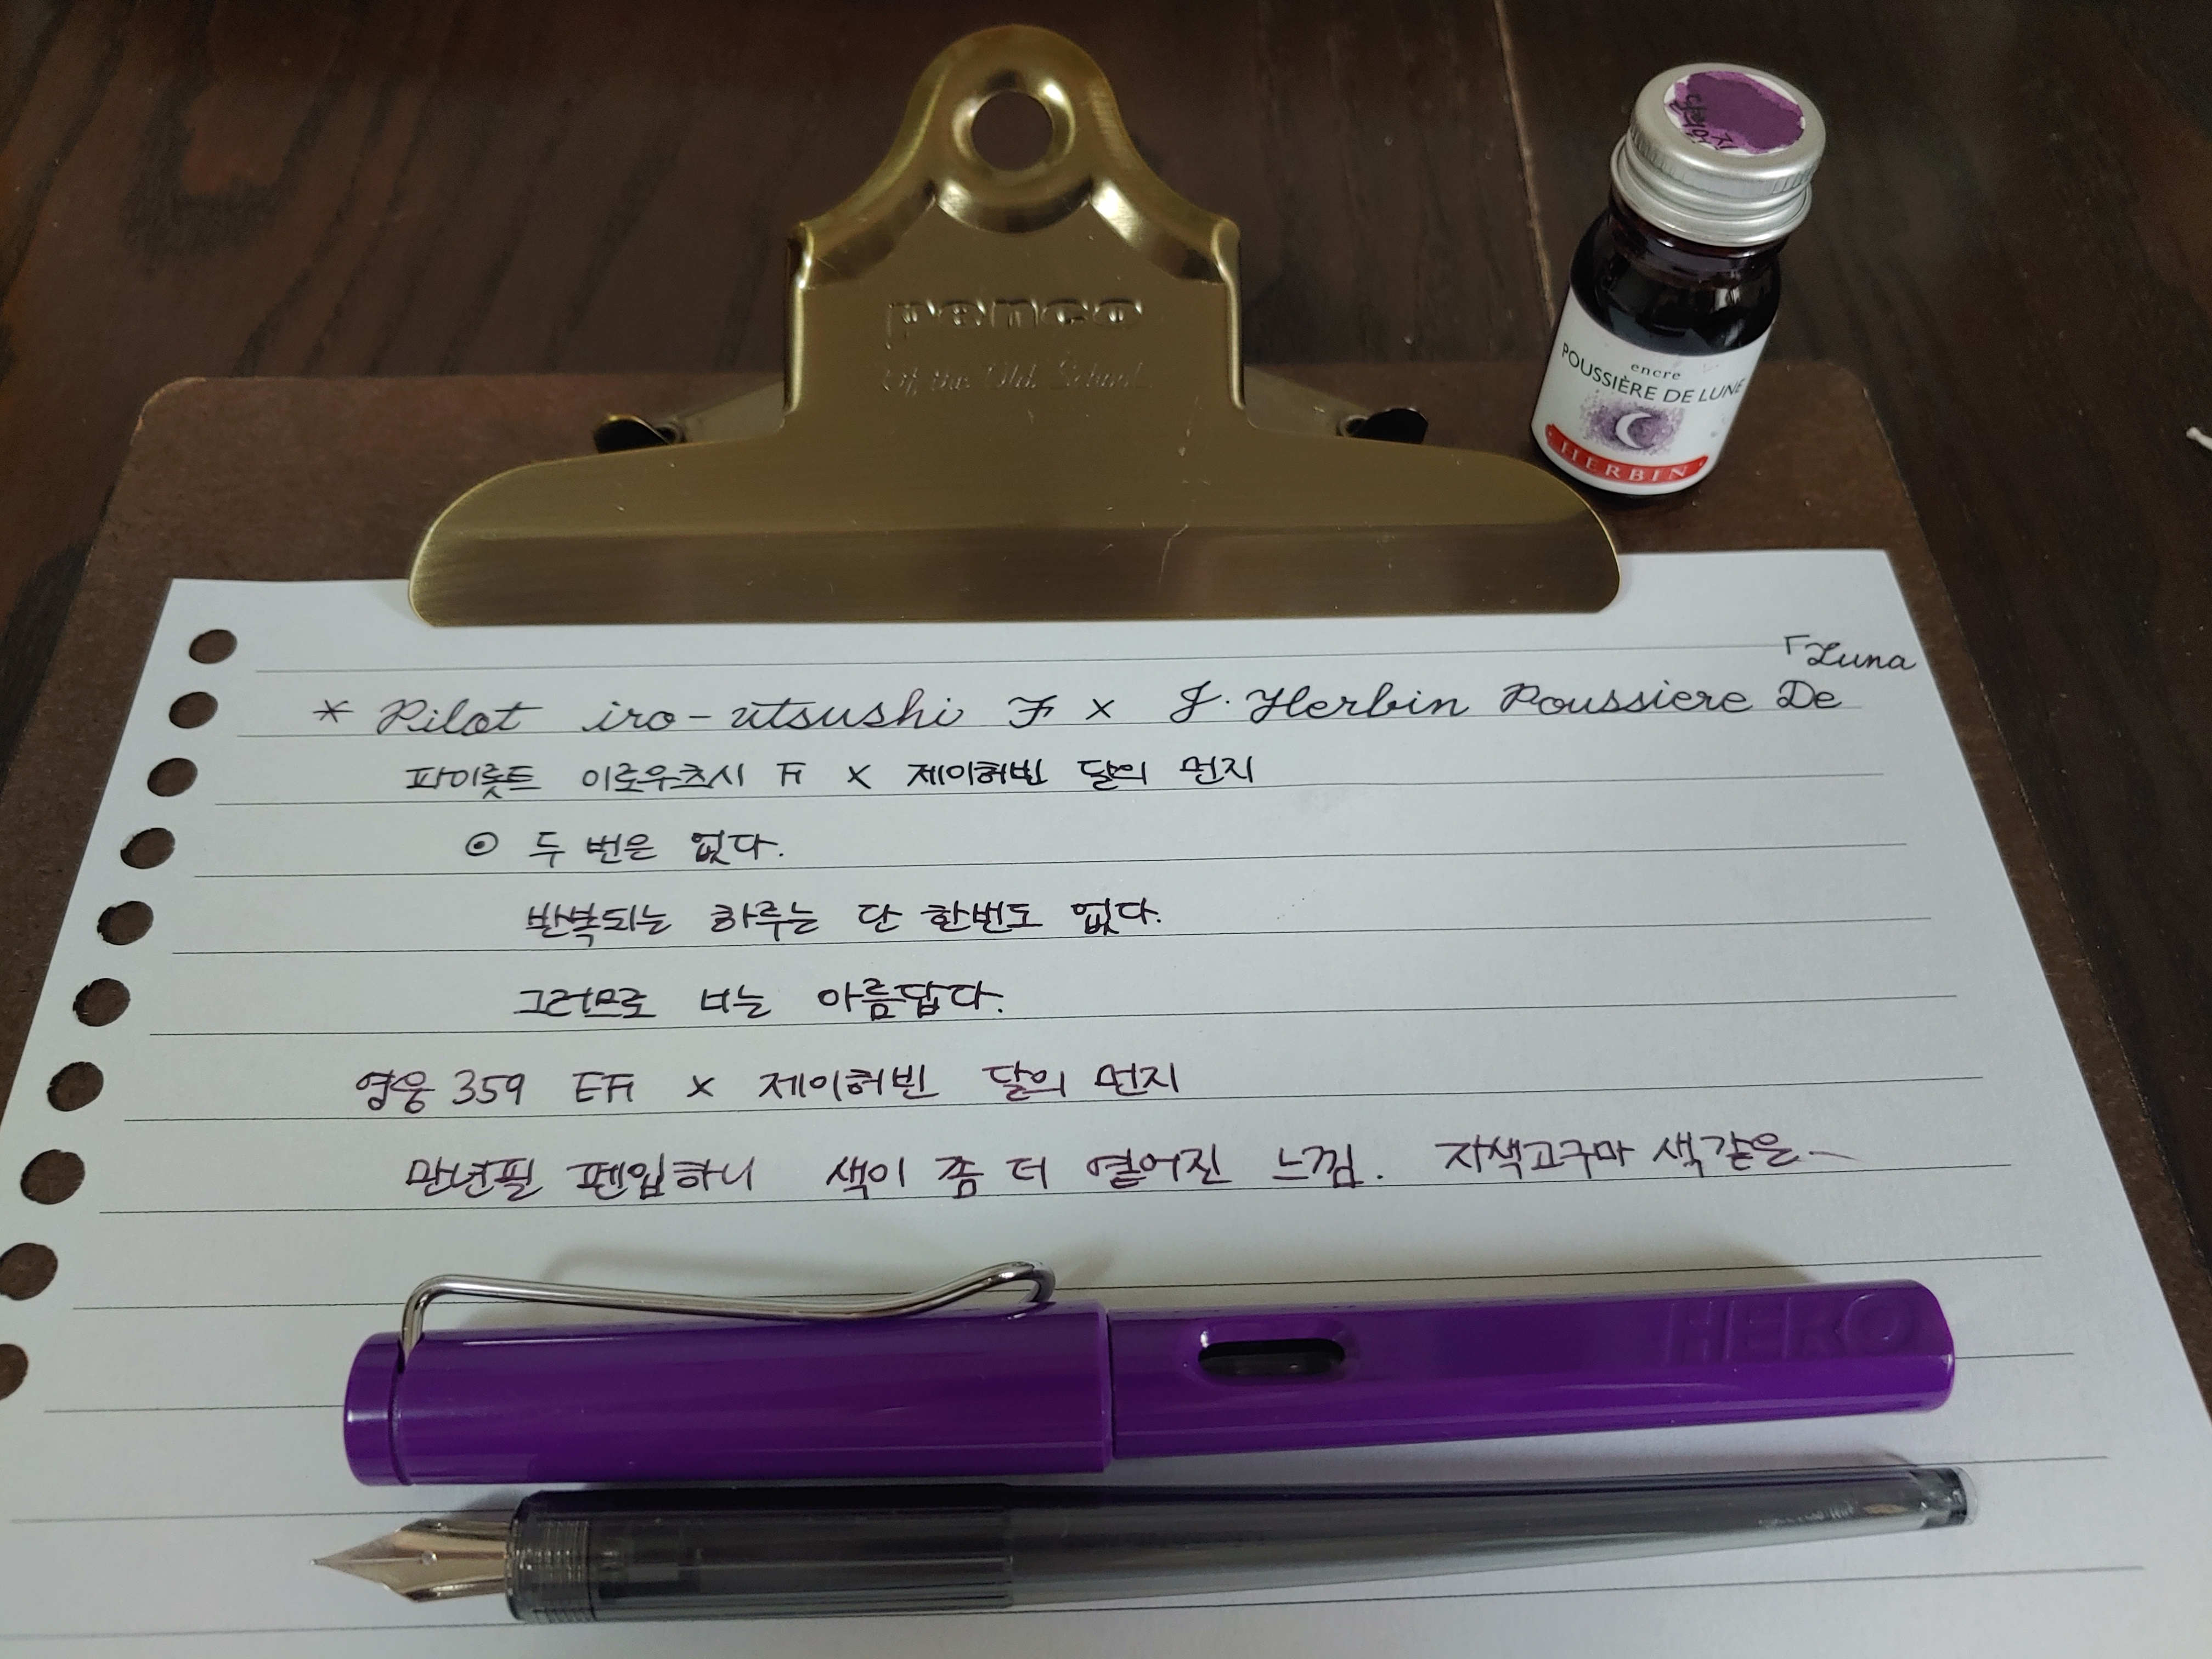 penco
Of the Old School
달의먼지
encre
POUSSIÈRE DE LUNE
HERBIN
「Luna
* Pilot iro-utsushi F × J. Herbin Poussiere De
파이롯트 이로우츠시 F × 제이허빈 달의 먼지
⊙ 두 번은 없다.
반복되는 하루는 단 한번도 없다.
그러므로 너는 아름답다.
영웅 359 EF × 제이허빈 달의 먼지
만년필 펜입하니 색이 좀 더 옅어진 느낌. 자색고구마 색같은~
HERO